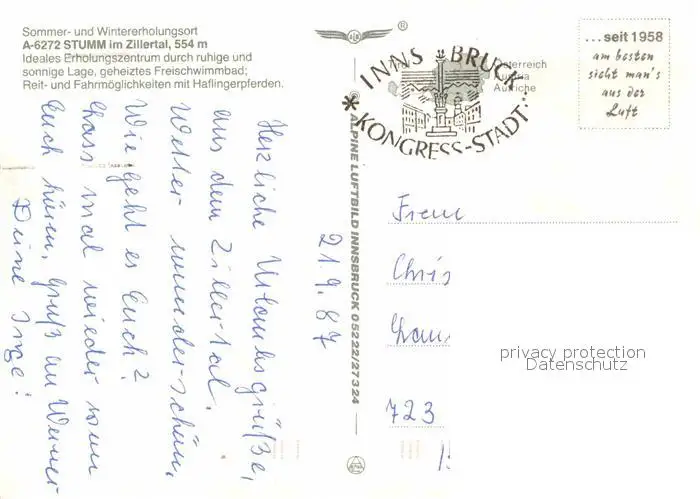 Sommer- und Wintererholungsort
A-6272 STUMM im Zillertal, 554 m
Ideales Erholungszentrum durch ruhige und
sonnige Lage, geheiztes Freischwimmbad;
Reit- und Fahrmöglichkeiten mit Haflingerpferden.
®
...seit 1958
am besten
sieht man's
aus der
Luft
Österreich
Austria
Autriche
INNSBRUCK
* KONGRESS-STADT
ALPINE LUFTBILD INNSBRUCK 05222/27324
21.9.87
Herzliche Urlaubsgrüße,
aus dem Zillertal.
Wetter wunderschön,
Wie geht es Euch?
Lass mal wieder von
Euch hören, Gruß an Werner
Deine Inge!
Frau
Chris
723
privacy protection
Datenschutz